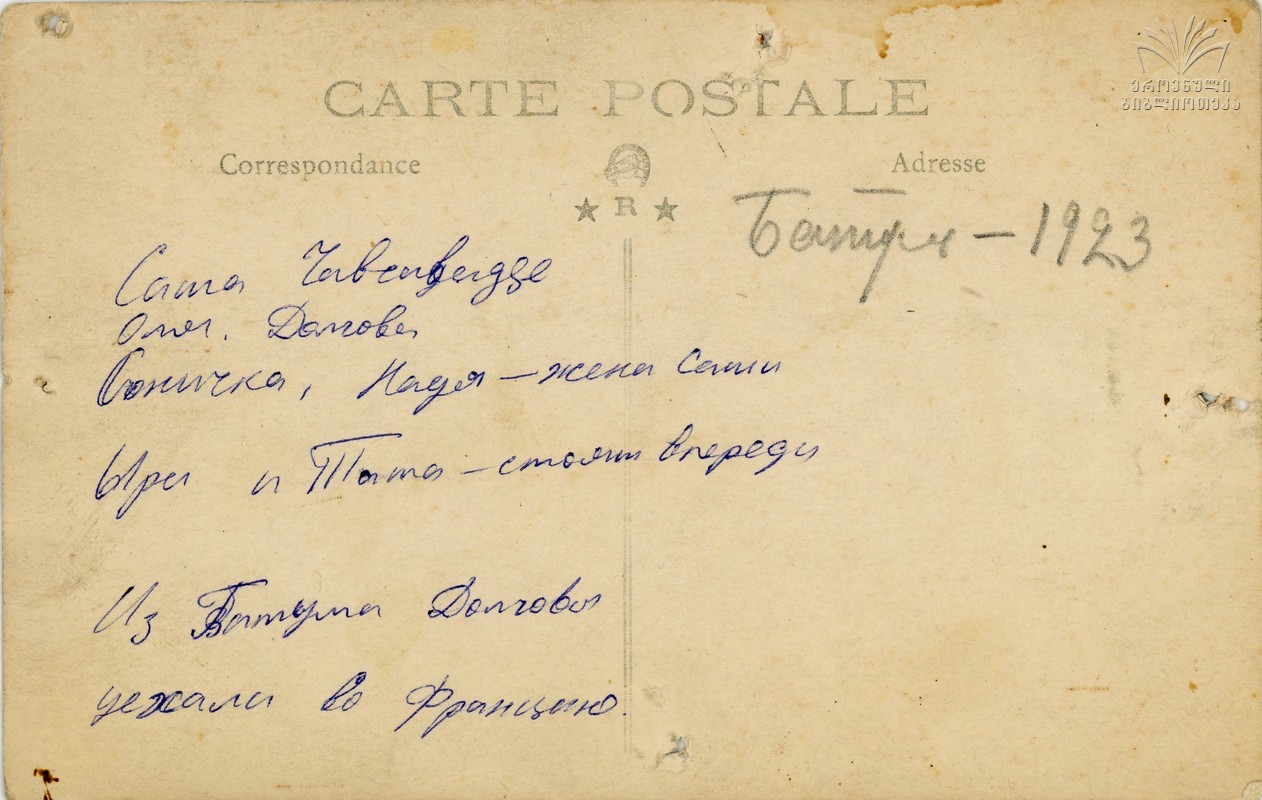 CARTE POSTALE
Correspondance
Adresse
★ R ★
Батум – 1923
Саша Чавчавадзе
Оля. Долговы
Соничка, Надя – жена Саши
Ира и Тата – стоят впереди
Из Батума Долговы
уехали во Францию.
ეროვნული
ბიბლიოთეკა